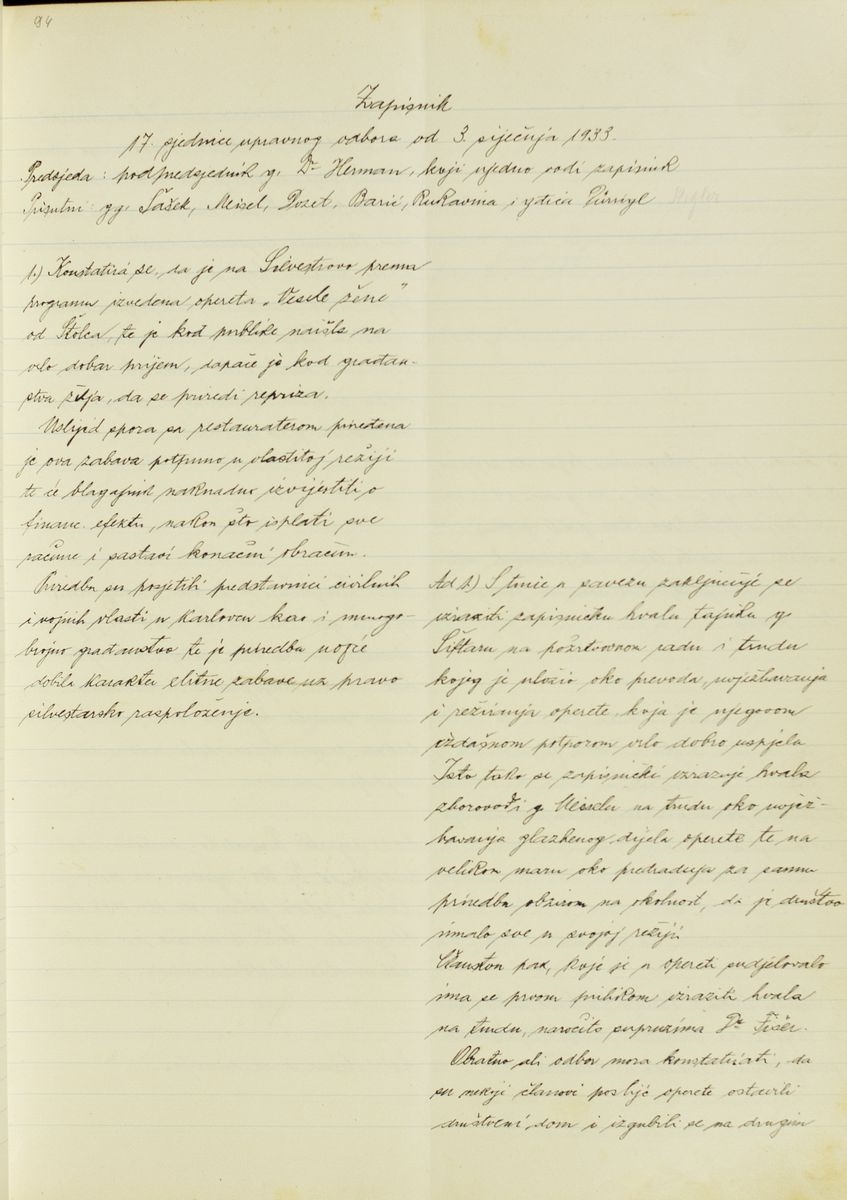 94
Zapisnik
17. sjednice upravnog odbora od 3. siječnja 1933.
Predsjeda: podpredsjednik g. Dr Herman, koji ujedno vodi zapisnik
Prisutni: gg Šašek, Meisel, Dozet, Barić, Rukavina i gđica
1.) Konstatira se, da je na Silvestrovo prema
programu izvedena opereta „Vesele žene"
od Štolca, te je kod publike naišla na
vrlo dobar prijem, dapače je kod građan-
stva želja, da se priredi repriza.
Uslijed spora sa restauraterom priređena
je ova zabava potpuno u vlastitoj režiji
te će blagajnik naknadno izvijestiti o
financ. efektu, nakon što isplati sve
račune i sastavi konačni obračun.
Priredbu su posjetili predstavnici civilnih
i vojnih vlasti u Karlovcu kao i mnogo-
brojno građanstvo te je priredba uopće
dobila karakter elitne zabave uz pravo
silvestarsko raspoloženje.
Ad 1.) S time u savezu zaključuje se
izraziti zapisničku hvalu tajniku g
Šiftaru na požrtvovnom radu i trudu
kojeg je uložio oko prevoda, uvježbavanja
i režiranja operete, koja je njegovom
izdašnom potporom vrlo dobro uspjela
Isto tako se zapisnički izrazuje hvala
zborovođi g Meiselu na trudu oko uvjež-
bavanja glazbenog dijela operete te na
velikom maru oko predradnja za samu
priredbu obzirom na okolnost, da je društvo
imalo sve u svojoj režiji.
Članstvu pak, koje je u opereti sudjelovalo
ima se prvom prilikom izraziti hvala
na trudu, naročito supruzima Dr Fišer.
Obratno ali odbor mora konstatirati, da
su nekoji članovi poslije operete ostavili
društveni dom i izgubili se na drugim